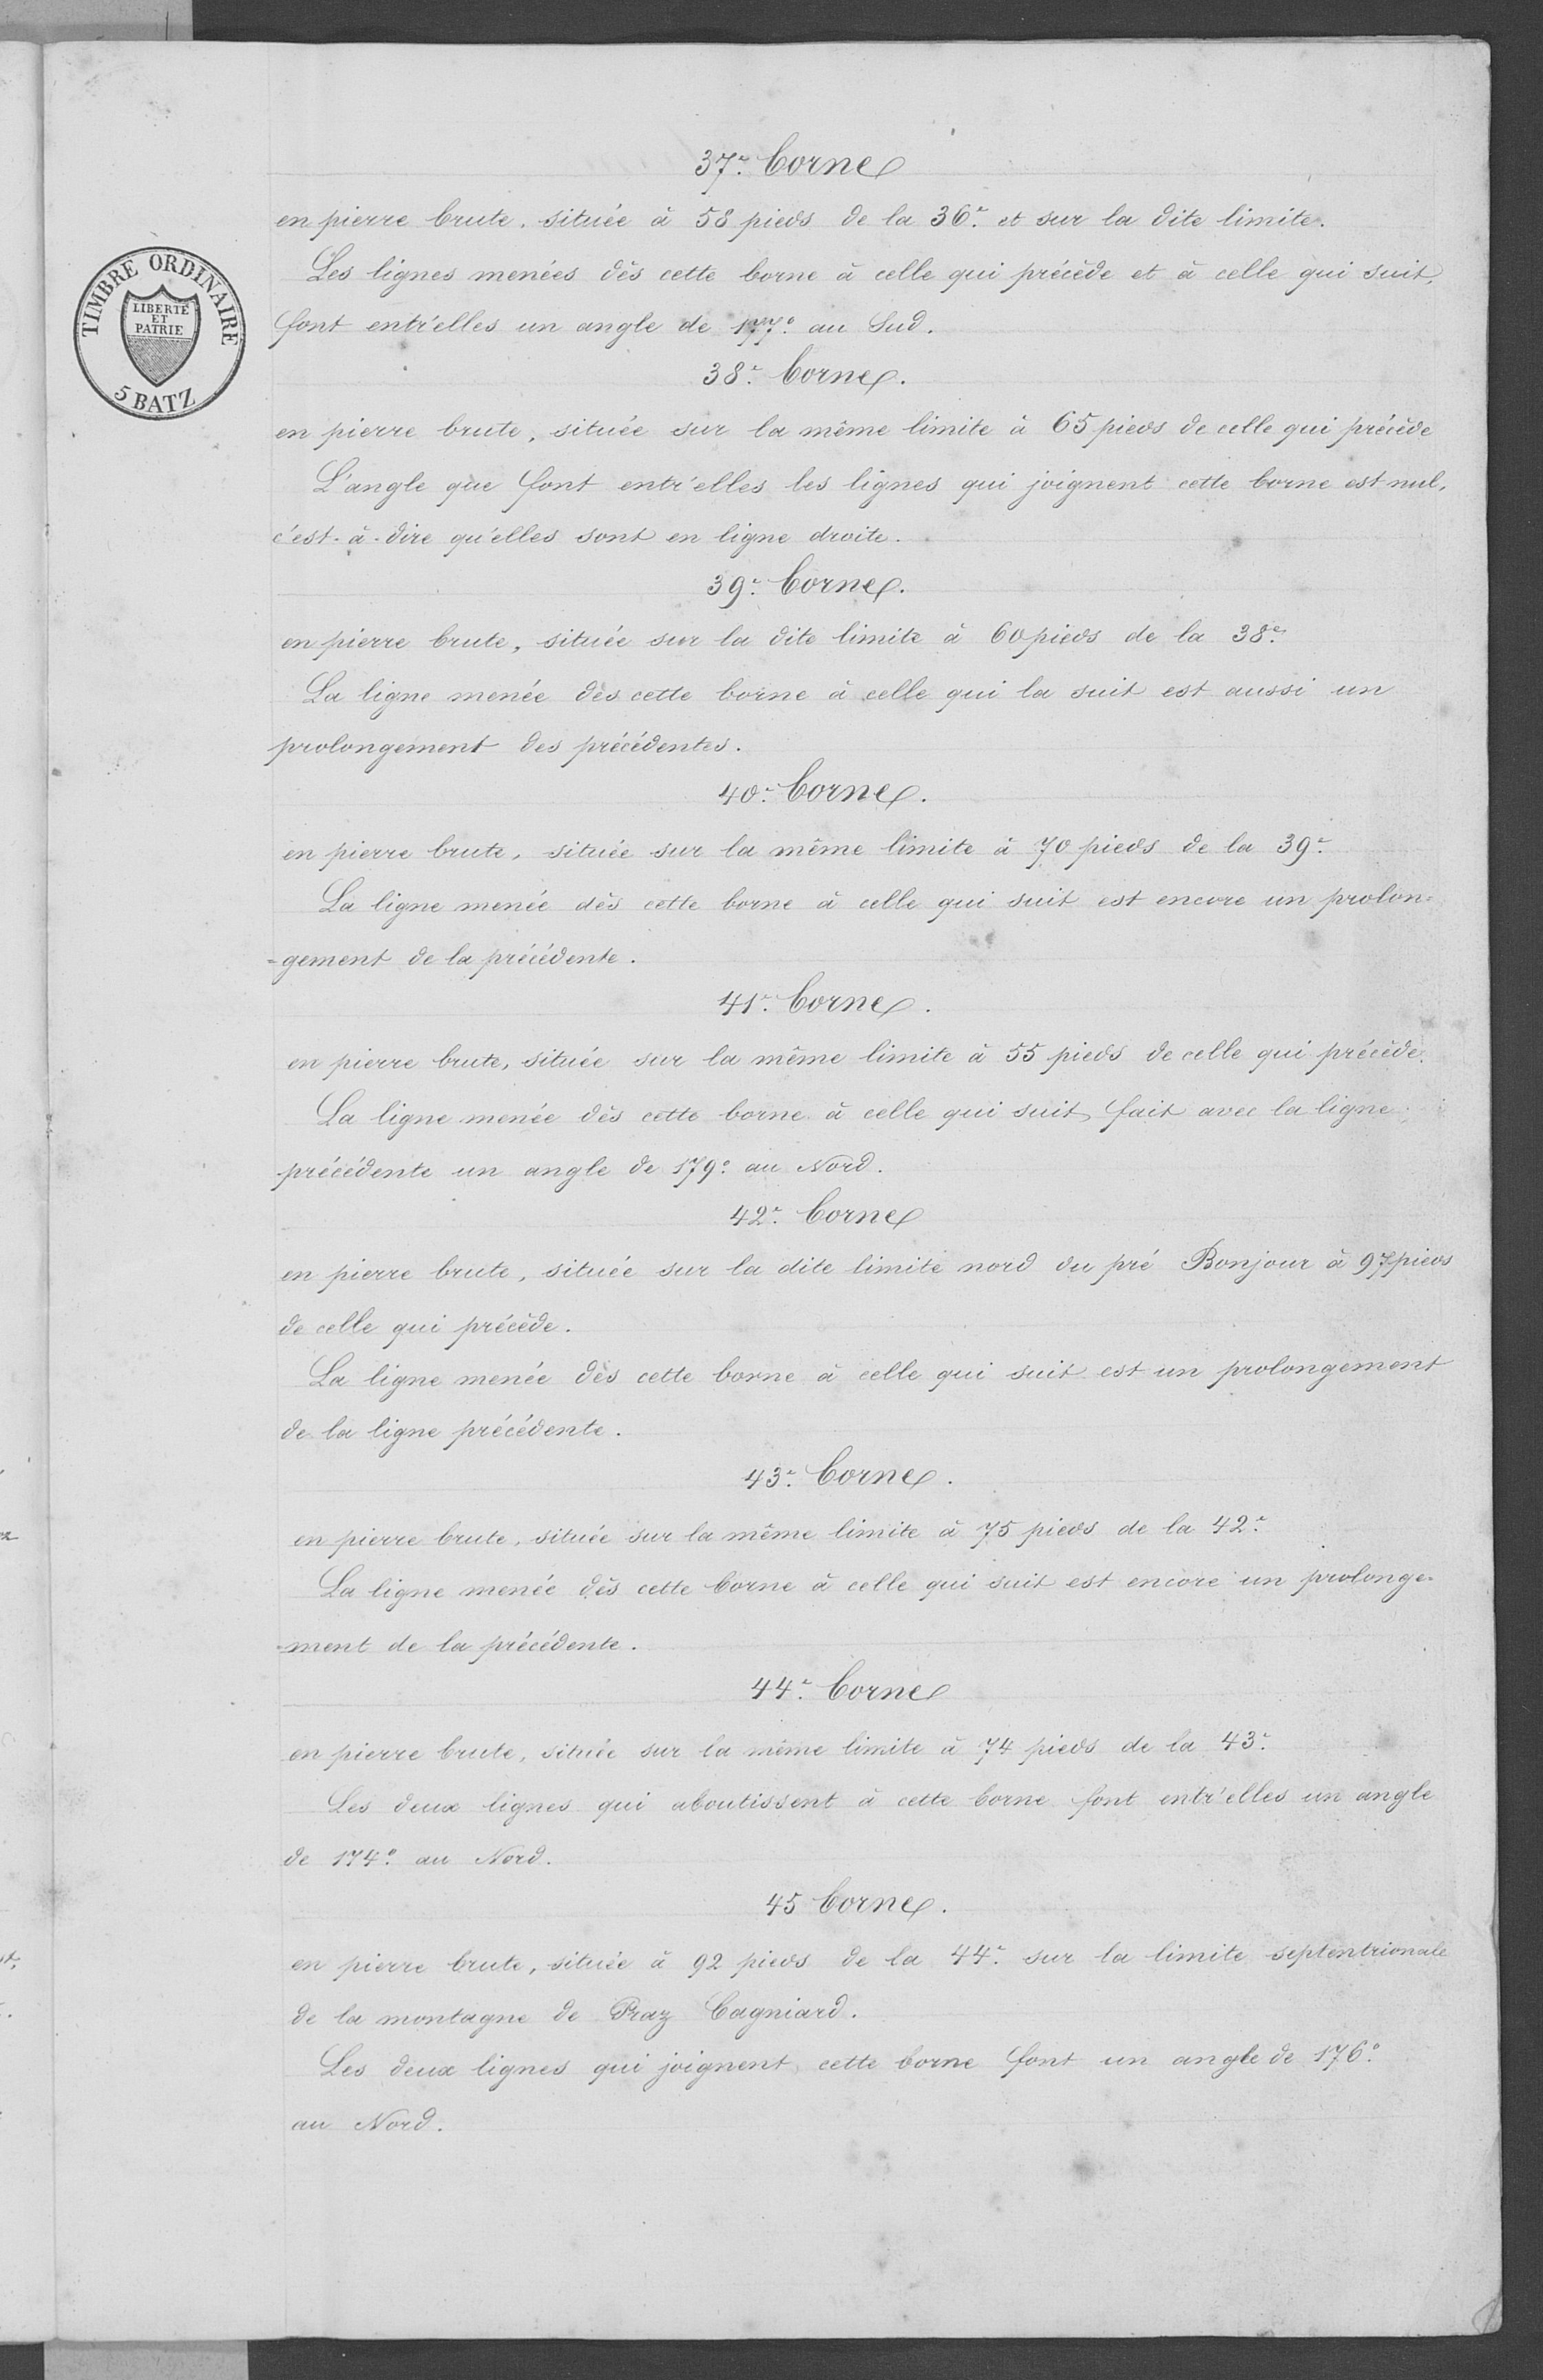 37.e borne
en pierre brute, située à 58 pieds de la 36.e et sur la dite limite.
Les lignes menées dès cette borne à celle qui précède et à celle qui suit,
font entr'elles un angle de 177.° au Sud.
TIMBRE ORDINAIRE
LIBERTÉ
ET
PATRIE
5 BATZ
38.e borne.
en pierre brute, située sur la même limite à 65 pieds de celle qui précède
L'angle que font entr'elles les lignes qui joignent cette borne est nul,
c'est-à-dire qu'elles sont en ligne droite.
39.e borne.
en pierre brute, située sur la dite limite à 60 pieds de la 38.e
La ligne menée dès cette borne à celle qui la suit est aussi un
prolongement des précédentes.
40.e borne.
en pierre brute, située sur la même limite à 70 pieds de la 39.e
La ligne menée dès cette borne à celle qui suit est encore un prolon=
=gement de la précédente.
41.e borne.
en pierre brute, située sur la même limite à 55 pieds de celle qui précède.
La ligne menée dès cette borne à celle qui suit fait avec la ligne
précédente un angle de 179.° au Nord.
42.e borne
en pierre brute, située sur la dite limite nord du pré Bonjour à 97 pieds
de celle qui précède.
La ligne menée dès cette borne à celle qui suit est un prolongement
de la ligne précédente.
43.e borne.
en pierre brute, située sur la même limite à 75 pieds de la 42.e
La ligne menée dès cette borne à celle qui suit est encore un prolonge=
=ment de la précédente.
44.e borne
en pierre brute, située sur la même limite à 74 pieds de la 43.e
Les deux lignes qui aboutissent à cette borne font entr'elles un angle
de 174.° au Nord.
45 borne.
en pierre brute, située à 92 pieds de la 44.e sur la limite septentrionale
de la montagne de Praz Cagniard.
Les deux lignes qui joignent cette borne font un angle de 176.°
au Nord.